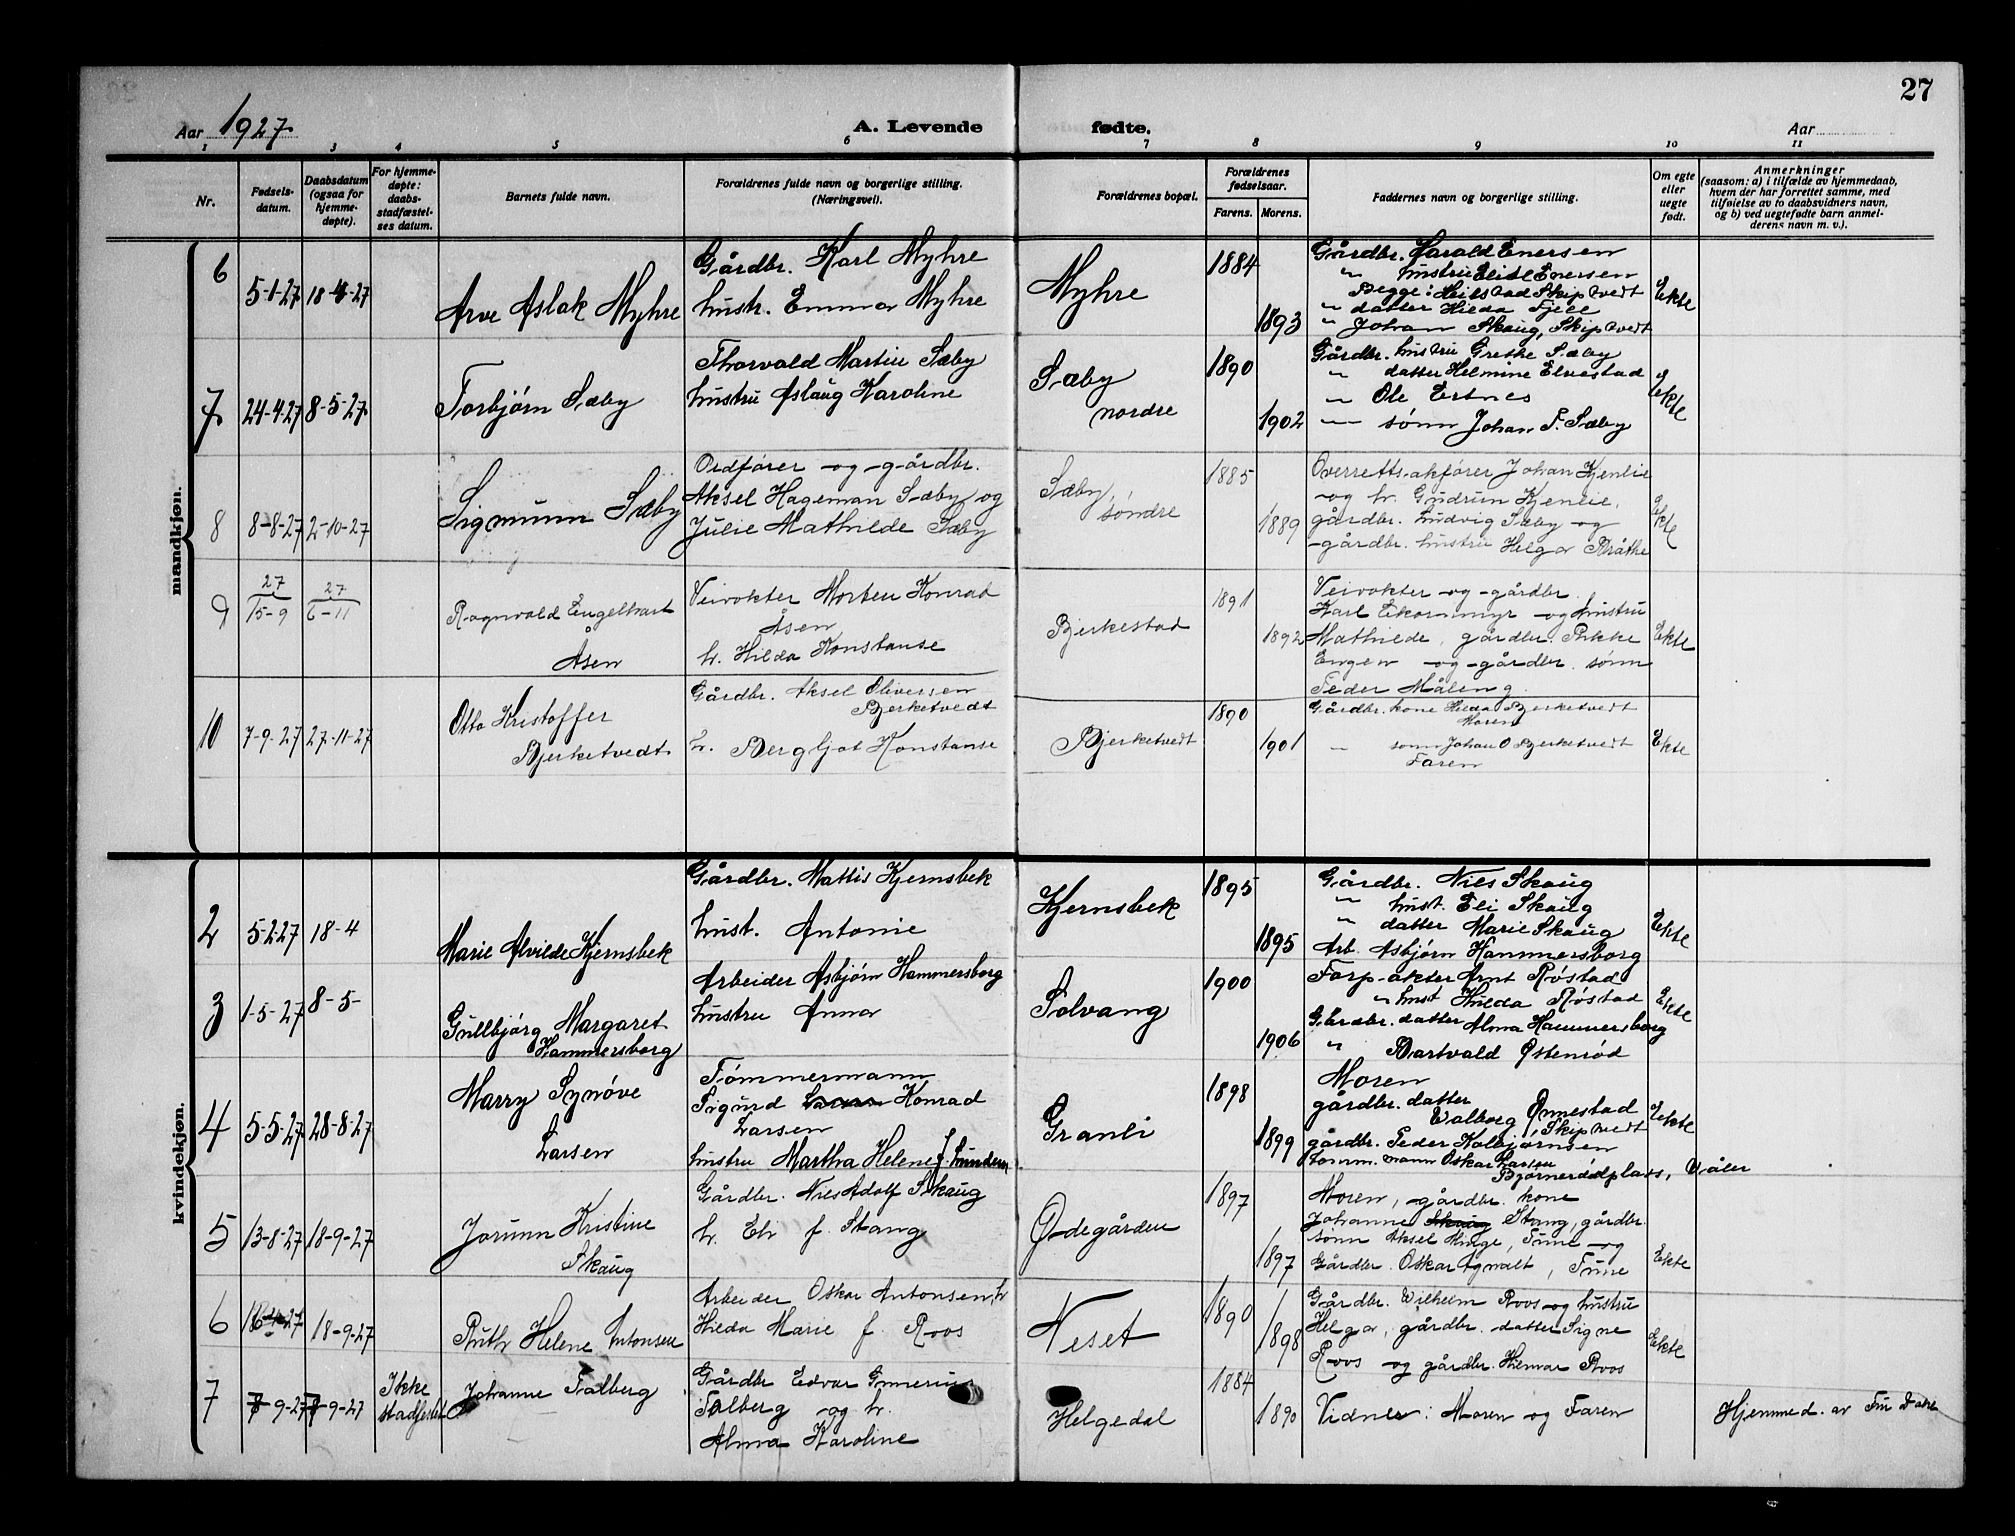 27
Aar 1927
A. Levende fødte.
Aar
1 3 4 5 6 7 8 9 10 11
Nr.
Fødsels-
datum.
Daabsdatum
(ogsaa for
hjemme-
døpte).
For hjemme-
døpte:
daabs-
stadfæstel-
ses datum.
Barnets fulde navn.
Forældrenes fulde navn og borgerlige stilling.
(Næringsvei).
Forældrenes bopæl.
Forældrenes
fødselsaar.
Farens. Morens.
Faddernes navn og borgerlige stilling.
Om egte
eller
uegte
født.
Anmerkninger
(saasom: a) i tilfælde av hjemmedaab,
hvem der har forrettet samme, med
tilføielse av to daabsvidners navn,
og b) ved uegtefødte barn anmel-
derens navn m. v.).
mandkjøn.
6
5-1-27 18-4-27
Arve Aslak Myhre
Gårdbr. Karl Myhre
hustr. Emma Myhre
Myhre
1884
1893
Gårdbr. Harald Enersen
" hustru Elise Enersen
Begge: Heilstad Skiptvedt
" datter Hilda Fjell
" Johan Skaug, Skiptvedt
Ekte
7
24-4-27 8-5-27
Torbjørn Sæby
Thorvald Martin Sæby
hustru Aslaug Karoline
Sæby
nordre
1890
1902
Gårdbr. hustru Grethe Sæby
" datter Helmine Elvestad
" Ole Ertnes
" sønn Johan T. Sæby
Ekte
8
8-8-27 2-10-27
Sigmunn Sæby
Ordfører og gårdbr.
Aksel Hageman Sæby og
Julie Mathilde Sæby
Sæby
søndre
1885
1889
Overrettssakfører Johan Kjenlie
og h. Gudrun Kjenlie,
gårdbr. Ludvig Sæby og
gårdbr. hustru Helga Bråthe
Ekte
9
27
15-9
27
6-11
Ragnvald Engelhart
Åsen
Veivokter Morten Konrad
Åsen
h. Hilda Konstanse
Bjerkestad
1891
1892
Veivokter og gårdbr.
Karl Ekornmyr og hustru
Mathilde, gårdbr. Rikke
Engen og gårdbr. sønn
Peder Måleng
Ekte
10
7-9-27 27-11-27
Otto Kristoffer
Bjerketvedt
Gårdbr. Aksel Oliversen
Bjerketvedt
h. Bergljot Konstanse
Bjerketvedt
1890
1901
Gårdbr. kone Hilda Bjerketvedt
Moren
" sønn Johan O Bjerketvedt
Faren
Ekte
kvindekjøn.
2
5-2-27 18-4
Marie Alvilde Kjernsbek
Gårdbr. Mattis Kjernsbek
hust. Antonie
Kjernsbek
1895
1895
Gårdbr. Nils Skaug
" hust. Eli Skaug
" datter Marie Skaug
Arb. Asbjørn Hammersborg
Ekte
3
1-5-27 8-5-
Gullbjørg Margaret
Hammersborg
Arbeider Asbjørn Hammersborg
hustru Anna
Solvang
1900
1906
Forp-akter Arnt Røstad
" hust Hulda Røstad
Gårdbr. datter Alma Hammersborg
" Bartvald Østenrød
Ekte
4
5-5-27 28-8-27
Marry Synøve
Larsen
Tømmermann
Sigurd Larsen Konrad
Larsen
hustru Martha Helene f. Lunden
Granli
1898
1899
Moren
gårdbr. datter
Valborg Ønnestad
Skiptvedt
gårdbr. Peder Kolbjørnsen
tømm. mann Oskar Larsen
Bjørnerødplass, Våler
Ekte
5
13-8-27 18-9-27
Jorunn Kristine
Skaug
Gårdbr. Nils Adolf Skaug
h. Eli f. Stang
Ødegården
1897
1897
Moren, gårdbr. kone
Johanne Skaug Stang, gårdbr.
sønn Aksel Hinge, Tune og
Gårdbr. Oskar Agnalt, Tune
Ekte
6
18-9-27
Ruth Helene Antonsen
Arbeider Oskar Antonsen, h
Hilda Marie f. Roos
Neset
1890
1898
Gårdbr. Wilhelm Roos og hustru
Helga, gårdbr. datter Signe
Roos og gårdbr. Hilmar Roos
Ekte
7
7-9-27 7-9-27
Ikke
stadfestet
Johanne Talberg
Gårdbr Edvar Gunerius
Talberg og h.
Alma Karoline
Helgedal
1884
1890
Vidner: Moren og Faren
Hjemmed. av Fru